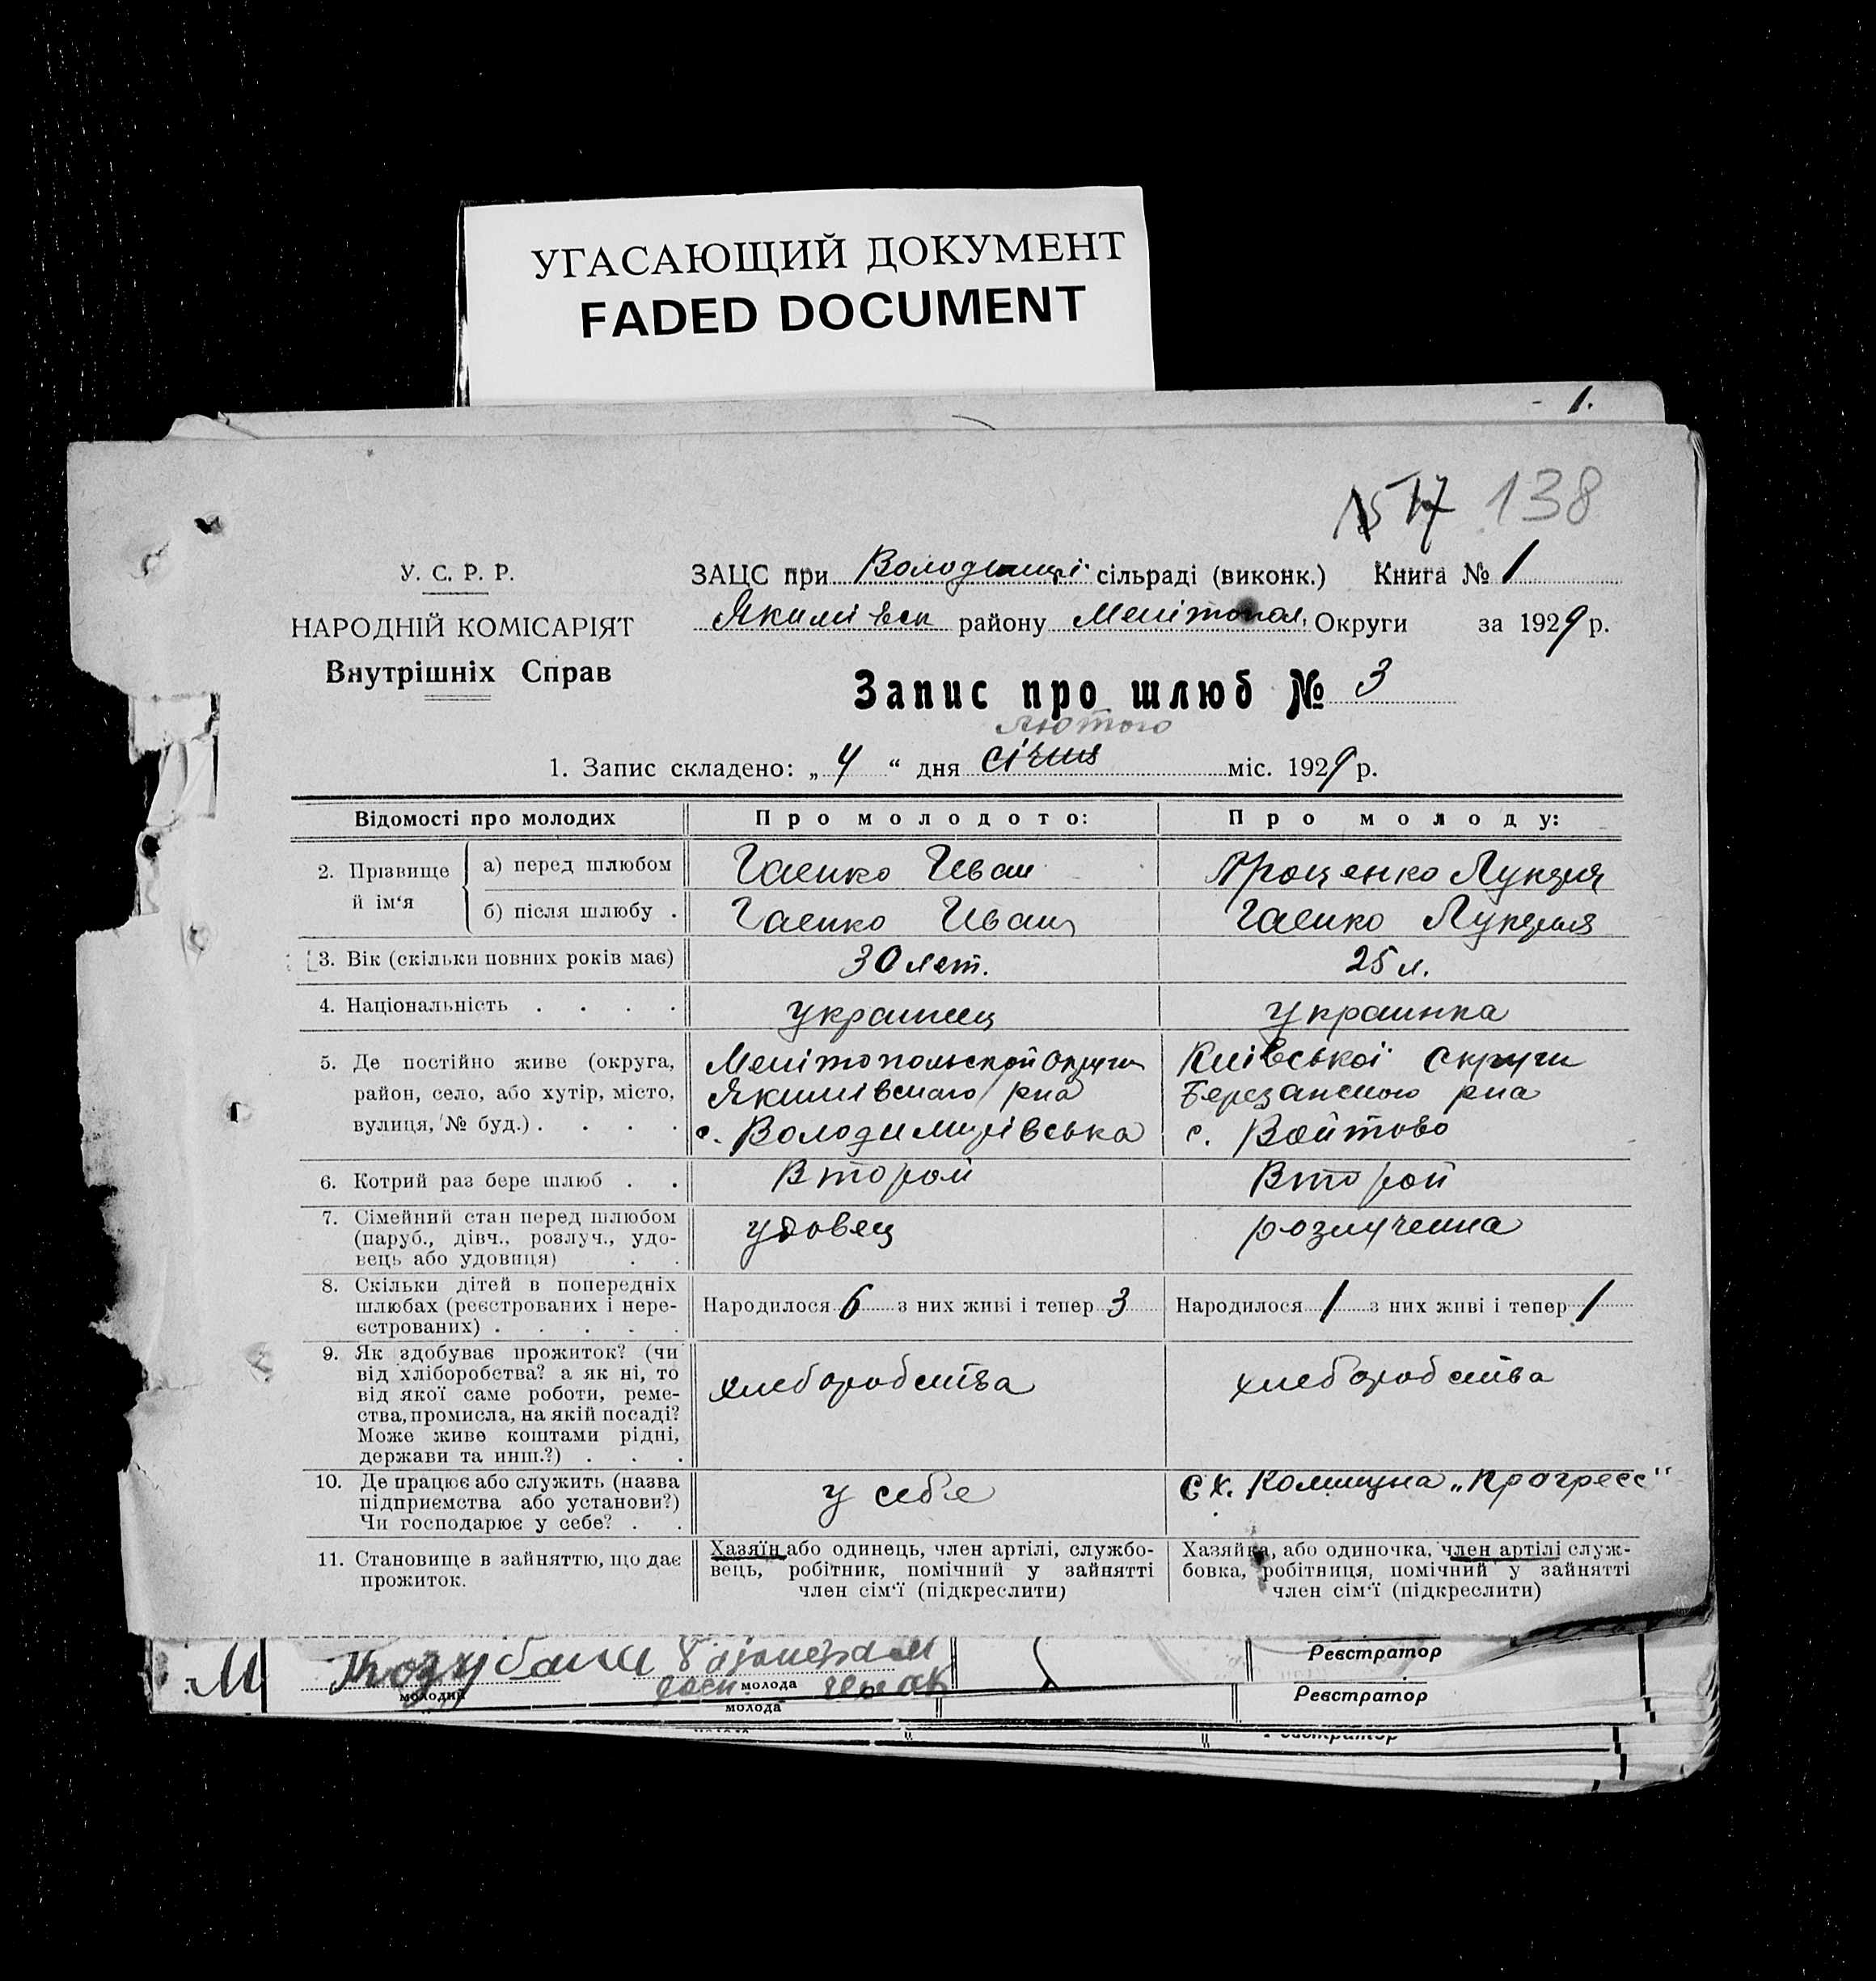 УГАСАЮЩИЙ ДОКУМЕНТ
FADED DOCUMENT
1.
17 138
У. С. Р. Р.
НАРОДНІЙ КОМІСАРІЯТ
Внутрішніх Справ
ЗАЦС при сільраді (виконк.) Книга № 1
Якимівськ району Мелітопол. Округи за 1929 р.
Запис про шлюб № 3
лютого
1. Запис складено: „ 4 “ дня січня міс. 1929 р.
Відомості про молодих
Про молодого:
Про молоду:
2. Прізвище й ім‘я
а) перед шлюбом
Гаенко Иван
Проценко Лукция
б) після шлюбу .
Гаенко Иван
Гаенко Лукция
3. Вік (скільки повних років має)
30 лет.
25 л.
4. Національність . . . .
украинец
украинка
5. Де постійно живе (округа,
район, село, або хутір, місто,
вулиця, № буд.) . . . .
Мелітопольской округи
Якимівского р-на
с. Володимирівська
Київської округи
Березанского р-на
с. Войтово
6. Котрий раз бере шлюб . .
Второй
Второй
7. Сімейний стан перед шлюбом
(паруб., дівч., розлуч., удо-
вець або удовиця) . .
удовец
розлученна
8. Скільки дітей в попередніх
шлюбах (реєстрованих і нере-
єстрованих) . . . . .
Народилося 6 з них живі і тепер 3
Народилося 1 з них живі і тепер 1
9. Як здобуває прожиток? (чи
від хліборобства? а як ні, то
від якої саме роботи, реме-
ства, промисла, на якій посаді?
Може живе коштами рідні,
держави та инш.?) . . .
хлебороbства
хлебороbства
10. Де працює або служить (назва
підприємства або установи?)
Чи господарює у себе? . .
у себе
С х. Коммуна „Прогресс"
11. Становище в зайняттю, що дає
прожиток.
Хазяїн або одинець, член артілі, службо-
вець, робітник, помічний у зайнятті
член сім‘ї (підкреслити)
Хазяйка, або одиночка, член артілі служ-
бовка, робітниця, помічний у зайнятті
член сім‘ї (підкреслити)
М
молодий
молода
Реєстратор
молода
Реєстратор
Реєстратор